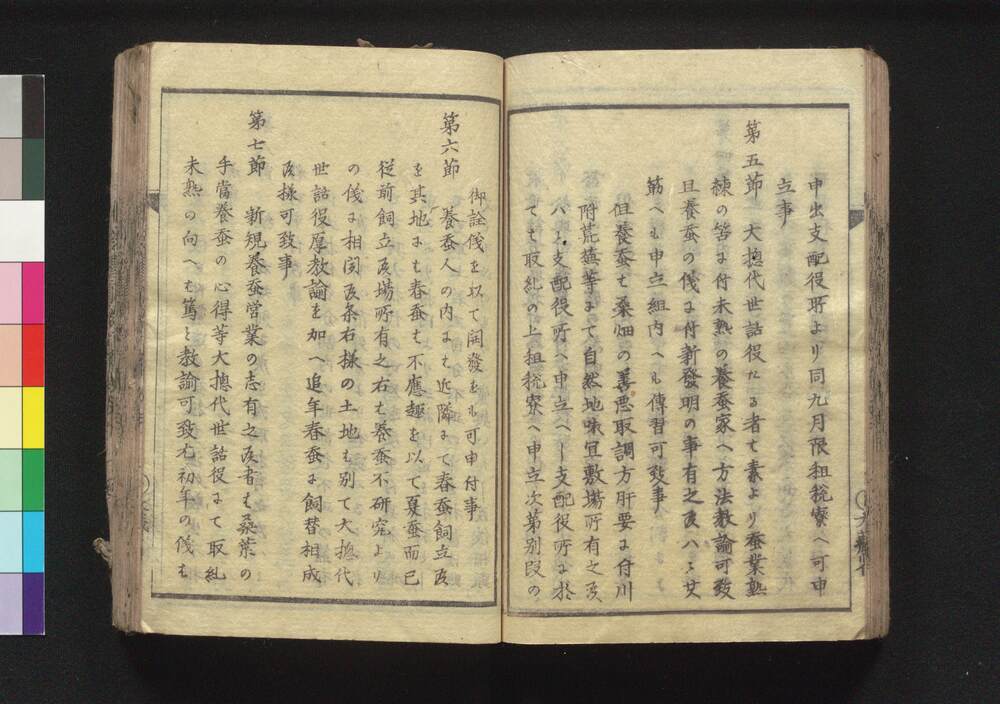 申出支配役所ゟ同九月限租税寮ヘ可申
立事
第五節 大惣代世話役たる者は素より蚕業熟
練の筈に付未熟の養蚕家ヘ方法教諭可致
且養蚕の儀に付新發明の事有之候ハヽ其
筋へも申立組内へも傳習可致事
但養蚕は桑畑の善悪取調方肝要に付川
附荒蕪等にて自然地味宜敷場所有之候
ハヽ支配役所ヘ申立ヘし支配役所に於
ては取糺の上租税寮ヘ申立次第別段の
御詮儀を以て開發をも可申付事
第六節 養蚕人の内には近隣にて春蚕飼立候
を其地には春蚕は不應趣を以て夏蚕而已
従前飼立候場所有之右は養蚕不研究より
の儀に相聞候条右様の土地は別て大惣代
世話役厚教諭を加ヘ追年春蚕に飼替相成
候様可致事
第七節 新規養蚕営業の志有之候者は桑葉の
手當養蚕の心得等大惣代世話役にて取糺
未熟の向ヘは篤と教諭可致尤初年の儀は